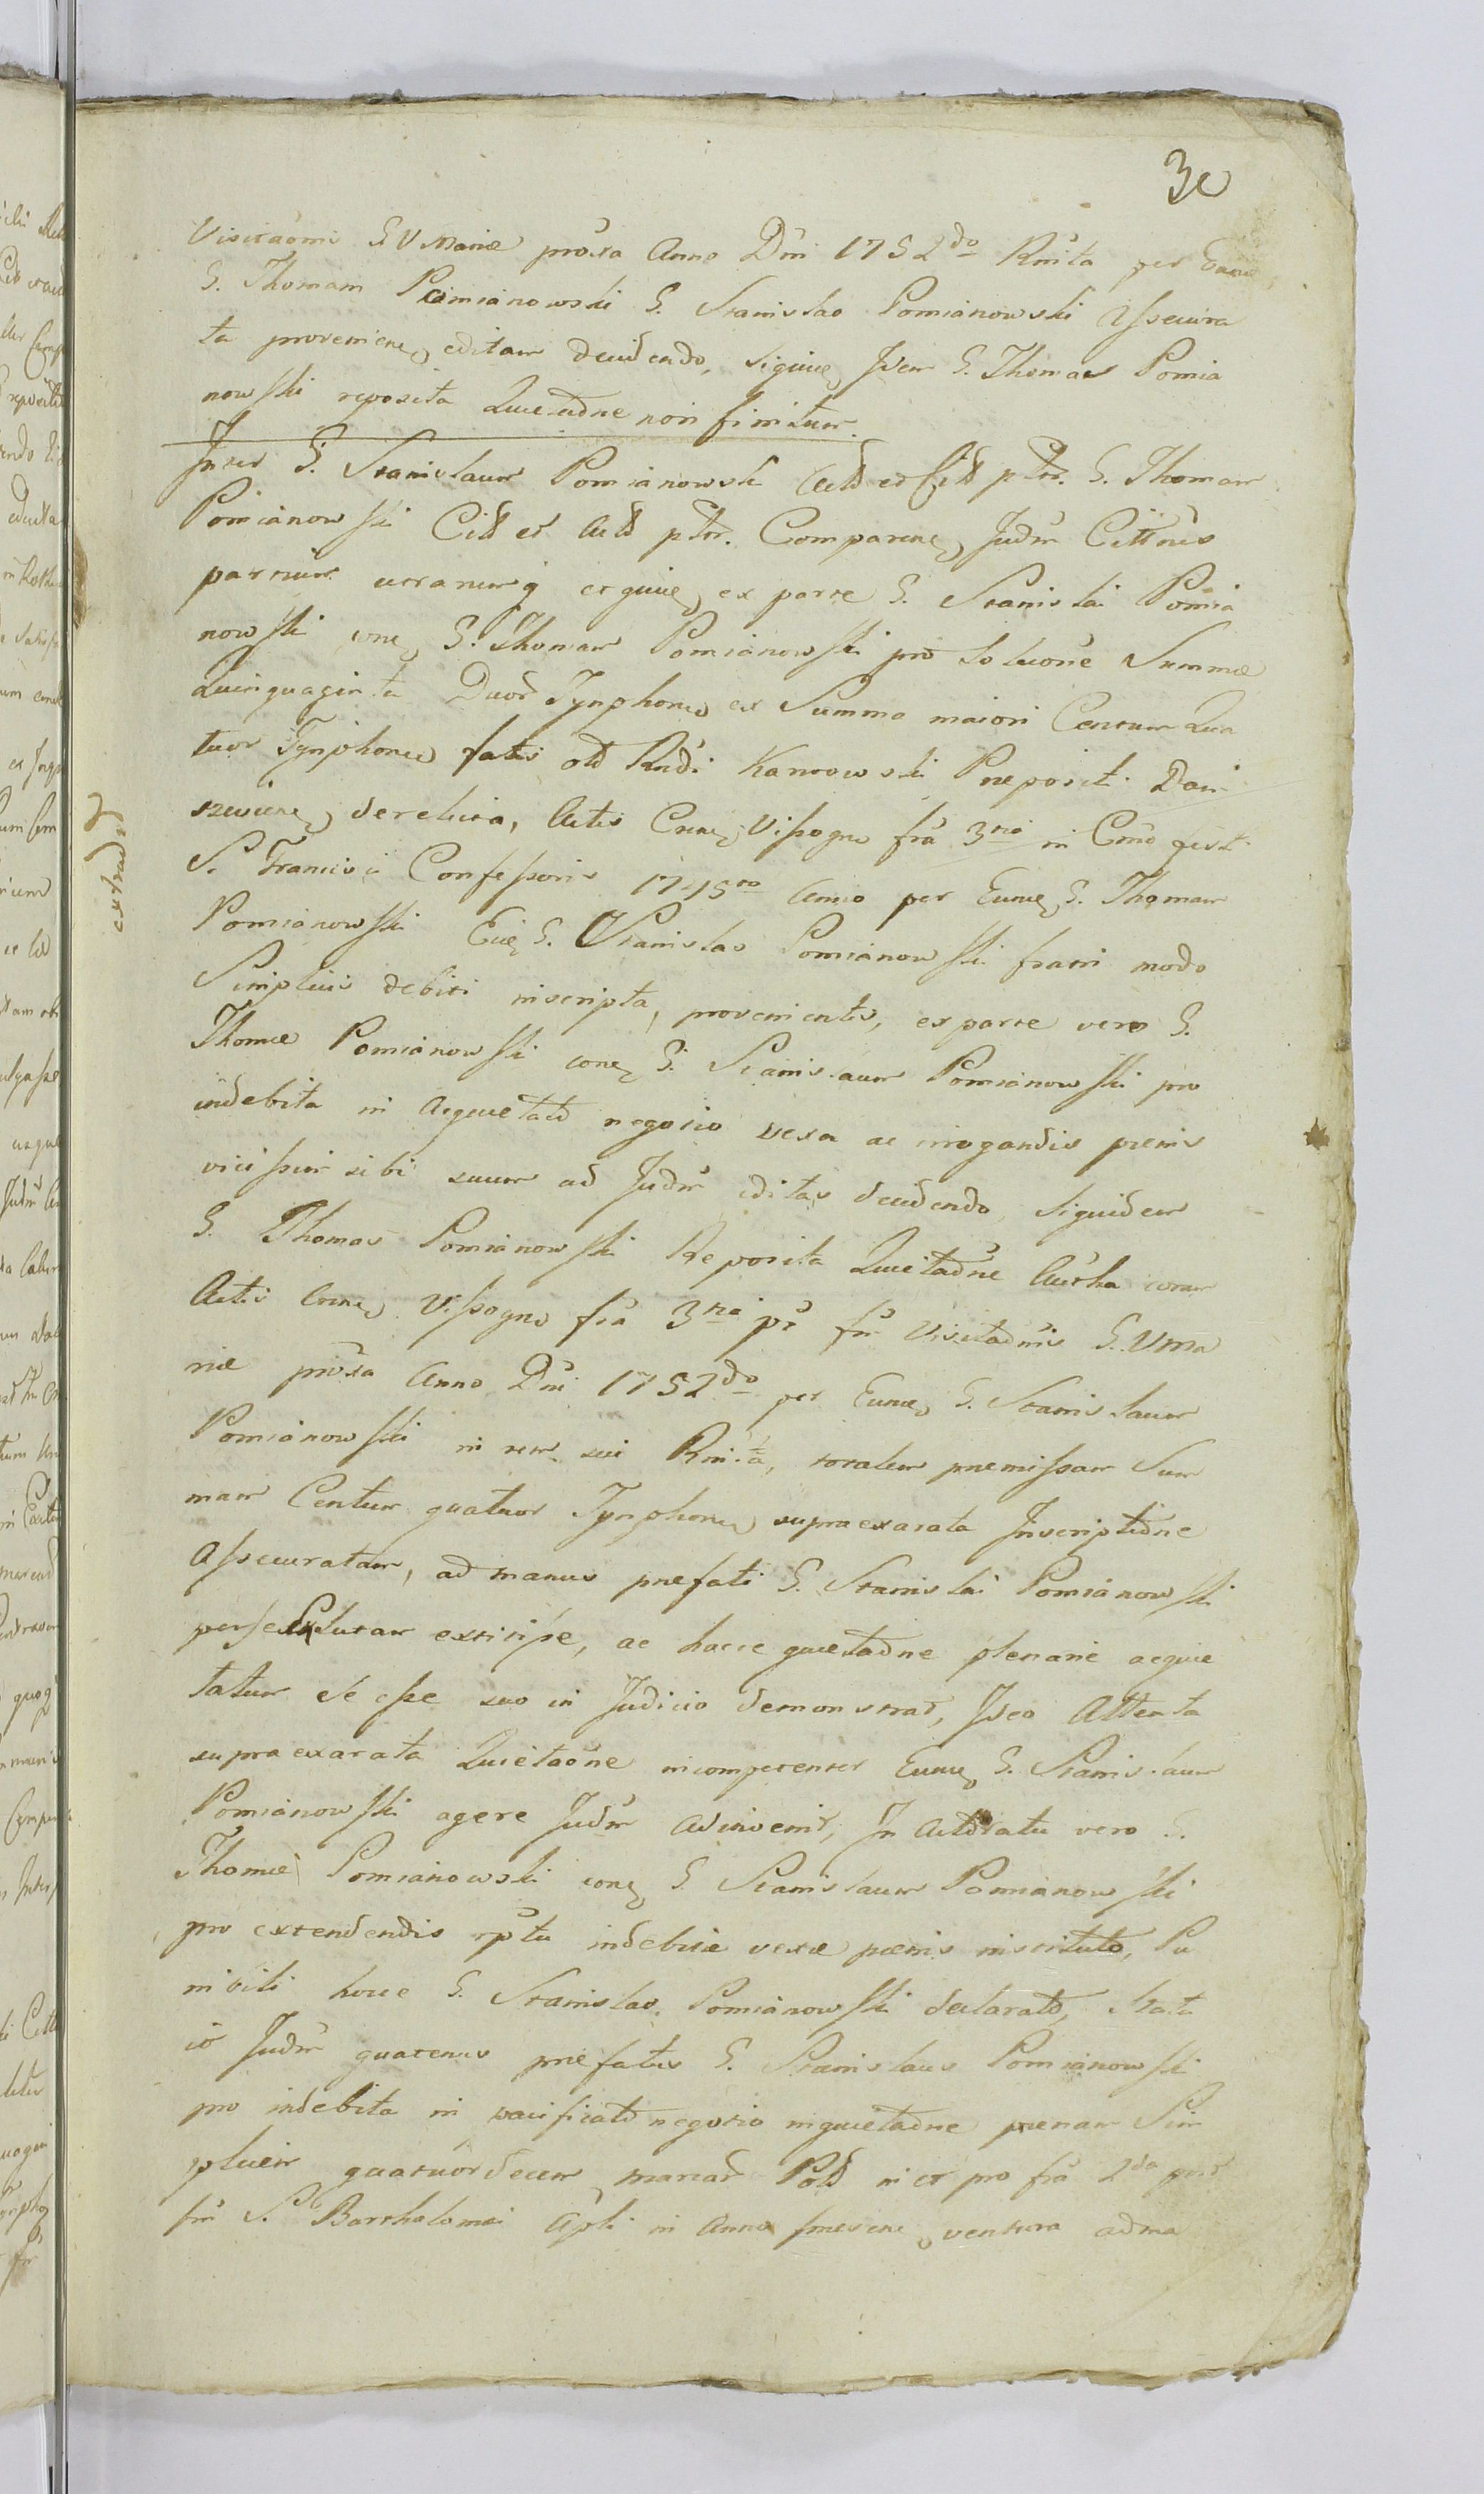 30
Visitaōni S V Mariæ prōxa Anno Dni 1752do Rnita per Eunę
G. Thomam Pomianowski G. Stanislao Pomianowski Assecura
ta provenienę editam decidendo, siquię Idem G. Thomas Pomia
nowski reposita Quietadne non finitur.
Inter G. Stanislaum Pomianowski Actd et Citd ptr. G. Thomam
Pomianowski Citd et Actd ptr. Comparenę Judm Cittnes
partium utranumq etquię ex parte G. Stanislai Pomia
nowski conę G. Thomam Pomianowski pro Solucone Summæ
Quinquaginta Duor Tynphonu ex Summa maiori Centum Qua
tuor Tynphonu fatis old Rndi Kamowski Præposit. Dani
szeviene derelicta, Actis Crneę Vissogne fra 3tia in Cmo fest.
S. Francisci Confessoris 1745to Anno per Eunę G. Thomam
Pomianowski Euę G. Stanislao Pomianowski fratri modo
Simplicis debiti inscripta, provenientis, ex parte vero G.
Thomæ Pomianowski conę G. Stanislaum Pomianowski pro
indebita in Acquietatd negotio vexa ac irrogandis pœnis
vicissim sibi suum ad Judm editas decidendo, Siquidem
G. Thomas Pomianowski Reposita Quietadne Autha coram
Actis Crneę Vissogne fra 3tia pt fm Visitadnis S. V Ma
riæ prōxa Anno Dni 1752do per Eunę G. Stanislaum
Pomianowski in rem sui Rnita, totalem præmissam Sum
mam Centum quatuor Tynphonu supraexarata Inscriptidne
Assecuratam, ad manus præfati G. Stanislai Pomianowski
perse Exsolutam extitisse, ac hacce quietadne plenarie acquie
tatum se esse suo in Judicio demonstrat, Ideo Attenta
supraexarata Quietaōne incompetenter Eunę G. Stanislaum
Pomianowski agere Judm Adinvenit, In Actdratu vero G.
Thomæ Pomianowski conę G. Stanislaum Pomianowski
pro extendendis rptu indebitæ vexæ pœnis instituto, Pu
nibili hocce G. Stanislao Pomianowski declaratd, Statu
it Judm quatenus præfatus G. Stanislaus Pomianowski
pro indebita in pacificatd negotio inquietadne pœnam Sim
plicem quatuordecim marcar Pold in et pro fra 2da
fm S. Bartholomæi Apli in Anno præsenę ventura adma
extradę